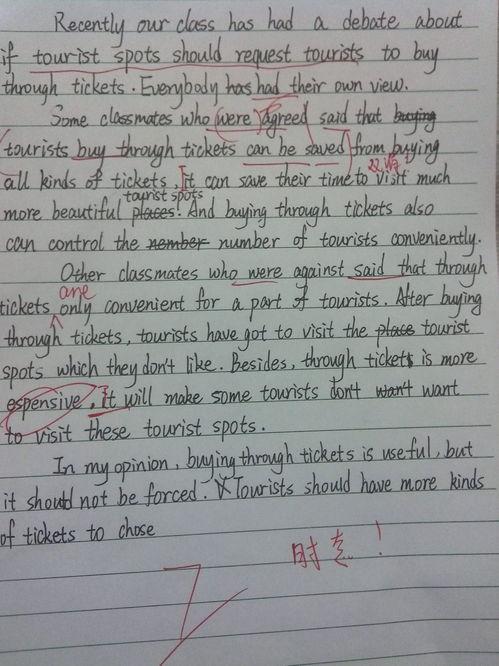 Recently our class has had a debate about
if tourist spots should request tourists to buy
through tickets. Everybody has had their own view.
Some classmates who were agreed said that buying
tourists buy through tickets can be saved from buying
all kinds of tickets, It can save their time to visit much
tourist spots
more beautiful places. And buying through tickets also
can control the nember number of tourists conveniently.
Other classmates who were against said that through
are
tickets only convenient for a part of tourists. After buying
through tickets, tourists have got to visit the place tourist
spots which they don't like. Besides, through tickets is more
espensive, It will make some tourists don't want want
to visit these tourist spots.
In my opinion, buying through tickets is useful, but
it should not be forced. Tourists should have more kinds
of tickets to chose